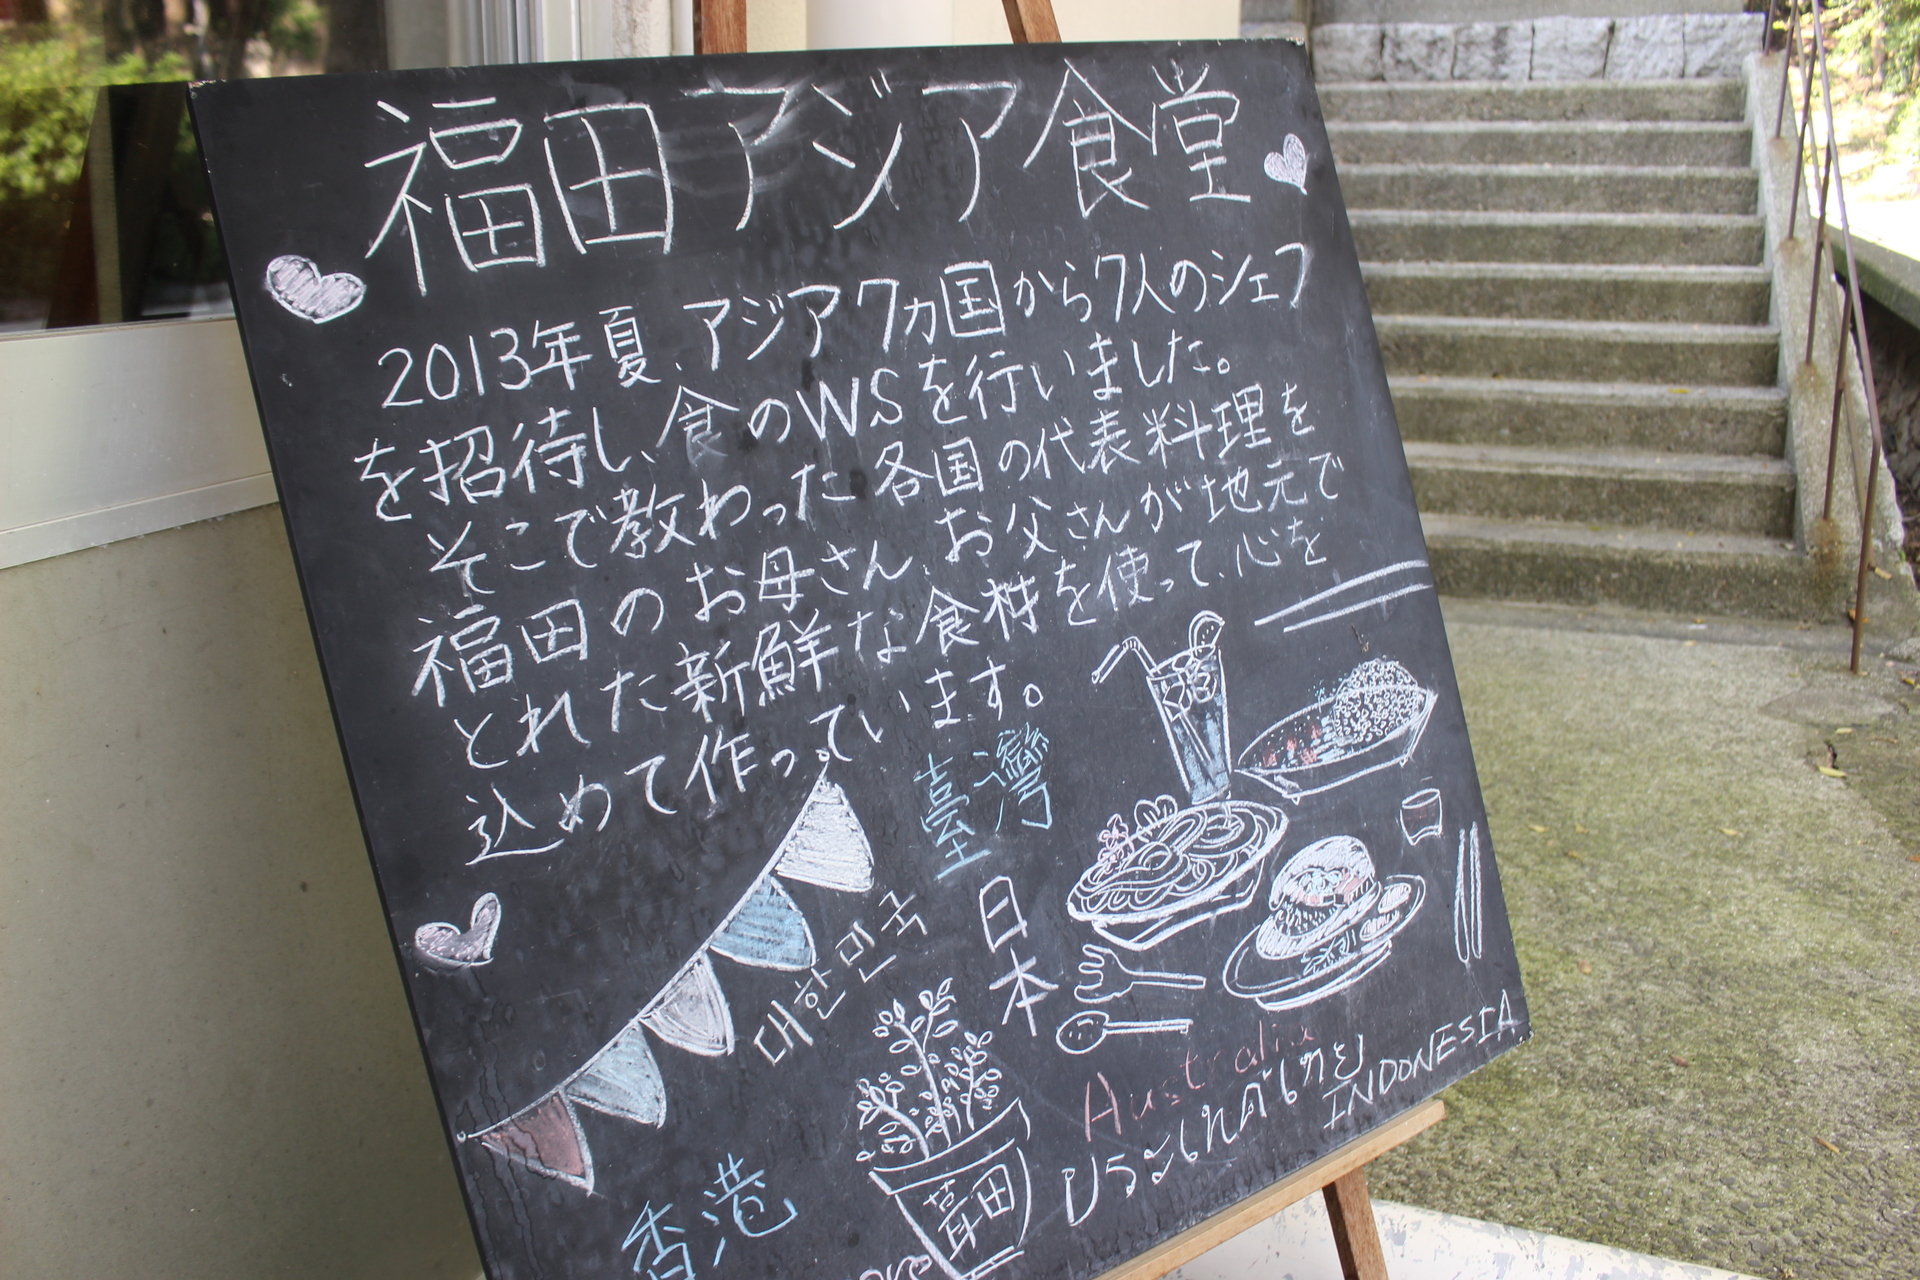 福田アジア食堂
2013年夏、アジア7ヵ国から7人のシェフ
を招待し、食のWSを行いました。
そこで教わった各国の代表料理を
福田のお母さん、お父さんが地元で
とれた新鮮な食材を使って、心を
込めて作っています。
臺灣
대한민국
日本
Australia
ประเทศไทย
INDONESIA
香港